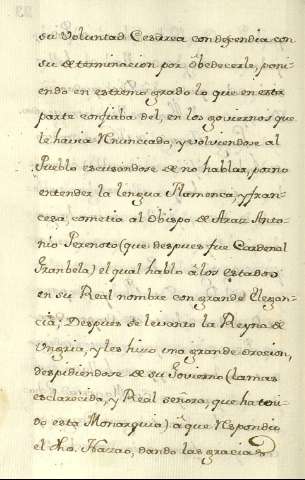 su Voluntad Cesarea condesendia con
su determinacion por obedecerle, poni-
endo en estremo grado lo que en esta
parte confiaba del, en los goviernos que
le havia Rnunciado, y volviendose al
Pueblo escusandose de no hablar, por no
entender la lengua Flamenca, y fran-
cesa, cometia al Obispo de Araz Anto-
nio Perenoto (que despues fue Cardenal
Granbela) el qual hablo á los estados
en su Real nombre con grande Elegan-
cia; Despues se levanto la Reyna de
Vngria, y les hizo vna grande orasion,
despidiendose de su Govierno (la mas
esclarecida, y Real señora, que ha teni-
do esta Monarquia) á que Respondio
el dho. Maes, dando las gracias